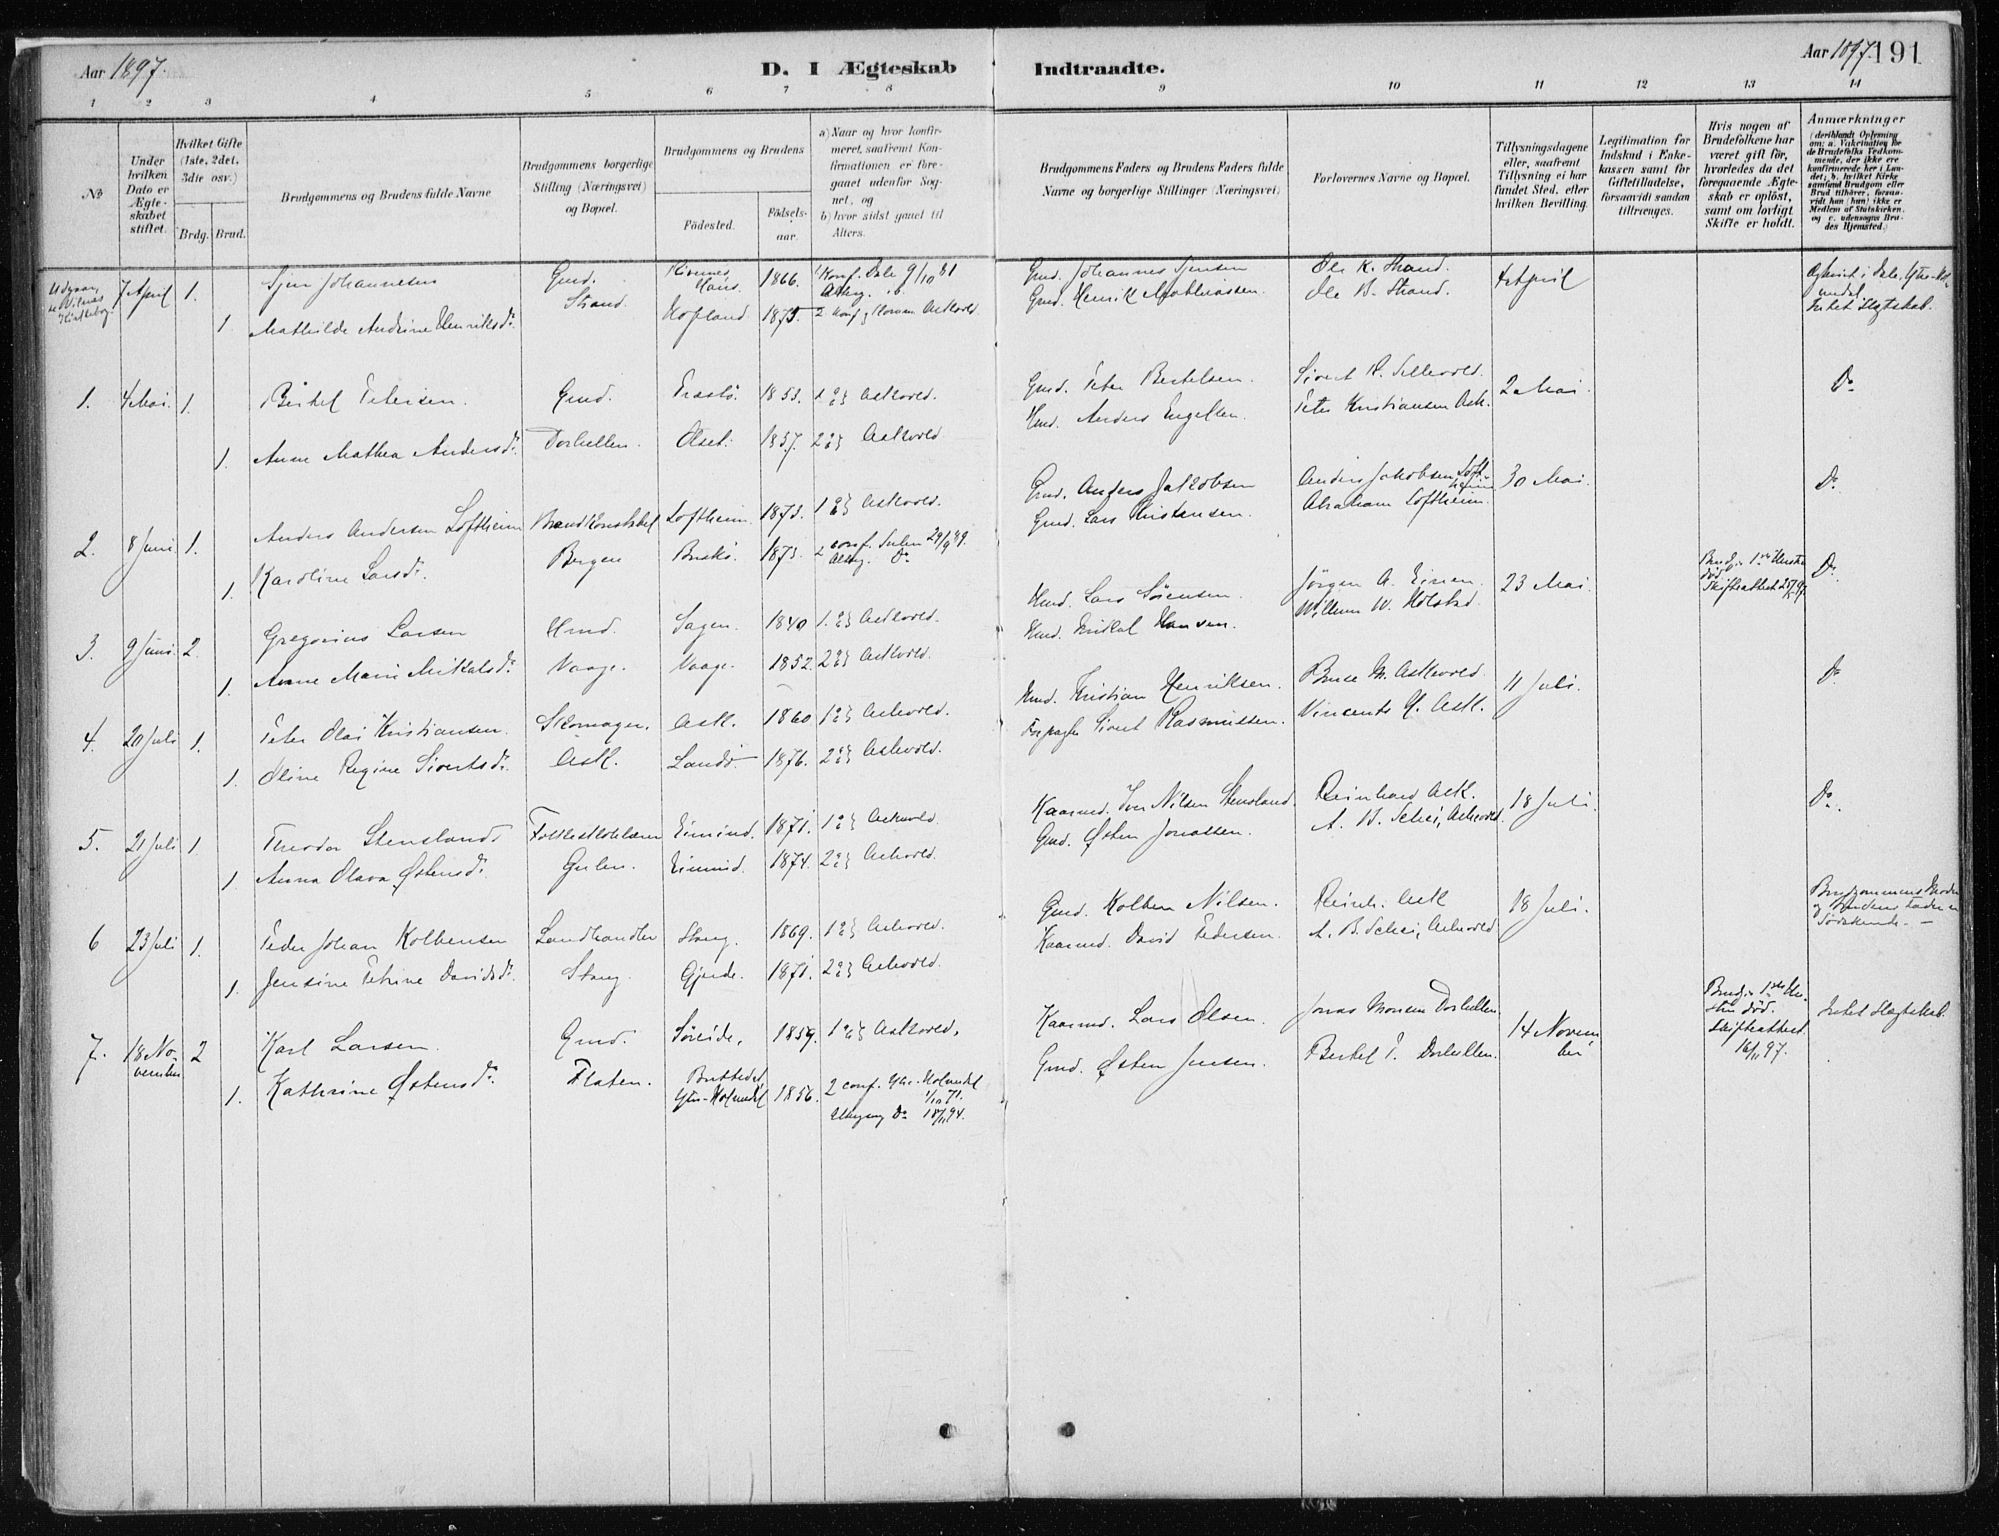 Aar 1897.
D. I Ægteskab Indtraadte.
Aar 1897. 191
1 2 3 4 5 6 7 8 9 10 11 12 13 14
№
Under hvilken Dato er Ægteskabet stiftet.
Hvilket Gifte (1ste, 2det, 3die osv.)
Brdg. Brud.
Brudgommens og Brudens fulde Navne
Brudgommens borgerlige Stilling (Næringsvei) og Bopæl.
Brudgommens og Brudens
Födested. Födsels-aar.
a) Naar og hvor konfirmeret, saafremt Konfirmationen er foregaaet udenfor Sognet, og
b) hvor sidst gaaet til Alters.
Brudgommens Faders og Brudens Faders fulde Navne og borgerlige Stillinger (Næringsvei)
Forlovernes Navne og Bopæl.
Tillysningsdagene eller, saafremt Tillysning ei har fundet Sted, efter hvilken Bevilling.
Legitimation for Indskud i Enkekassen samt for Giftetilladelse, forsaavidt saadan tiltrænges.
Hvis nogen af Brudefolkene har været gift för, hvorledes da det foregaaende Ægteskab er oplöst, samt om lovligt Skifte er holdt.
Anmærkninger
(deriblandt Oplysning om: a. Vakcination for de Brudefolks Vedkommende, der ikke ere konfirmerede her i Landet, b. hvilket Kirkesamfund Brudgom eller Brud tilhører, forsaavidt han (hun) ikke er Medlem af Statskirken, og c. udensogns Brudes Hjemsted.)
7 April 1. Johannesen Gmd. 1866. Konf. Dale 9/10 81 Gmd. Johannes Ole K. Strand. 4 April
1 Mathilde Andrine Henriksdr. Strand. Hopland 1873. 2 Askvold Gmd. Henrik Mathiassen Ole B. Strand. Intet Slegtskab.
1. 4 Mai. 1. Bertel Petersen. Gmd. 1853. 1 Askvold. Gmd. Peter Bertelsen. Sivert 2 Mai. Do
1. Anne Mathea Andersdr. Dorhellen. Olset. 1857. 2 Askvold Hmd. Anders Engelsen. Peter Kristiansen Ask.
2. 8 Juni 1. Anders Andersen Loftheim Brandkonstabel Loftheim. 1873. 1 Askvold. Gmd. Anders Jakobsen Anders Jakobsen Loftheim 30 Mai. Do
1 Karoline Larsdr. Bergen 1873. 2 conf. Do Gmd. Lars Kristensen. Abraham Loftheim.
3. 9 Juni. 2. Gregorius Larsen Hmd. Sagen. 1840 1. Askvold. Hmd. Lars Sörensen. Jörgen A. 23 Mai. Brudg. 1ste Hustru död Skifteattest Do
1. Anne Marie Mikalsdr. Vaage. Vaage. 1852. 2 Askvold. Hmd. Mikal Hansen. Willum W. Holstad
4. 20 Juli 1. Peter Olai Kristiansen. Skomager. Ask. 1860 1 Askvold. Hmd. Kristian Henriksen. M. Askvold. 11 Juli. Do
1. Oline Regine Sivertsdr. Ask. Landö 1876. 2 Askvold. Sivert Rasmussen. Vincents Ask.
5. 21 Juli 1. Theodor Stensland Gulen. 1871. 1 Askvold. Kaarmd. Iver Nilsen Stensland. Reinhard Ask. 18 Juli. Do.
1. Anna Olava Østensdr. 1874. 2 Askvold. Gmd. Østen Jonassen. A. B. Schei, Askvold.
6 23 Juli 1. Peder Johan Kolbensen Landhandler Stang. 1869. 1 Askvold. Gmd. Kolben Nilsen. Reinh. Ask 18 Juli. Brudgommens Moder og Brudens Fader er Södskende. —
1. Jensine Petrine Davidsdr. Stang Gjerde. 1871. 2 Askvold. Kaarmd. David Pedersen. A. B. Schei, Askvold
7. 18 November 2 Karl Larsen. Gmd. Söreide. 1859. 1 Askvold. Kaarmd. Lars Olsen. Jonas Monsen Dorhellen 14 November Brudg. 1ste Hustru död. Skifteattest. 16/11 97. Intet Slegtskab.
1. Kathrine Østensdr. Flaten. Ytre-Holmedal 1856. 2 conf. Ytre-Holmedal 1/10 71. Do Gmd. Østen Jensen. Bertel P. Dorhellen.